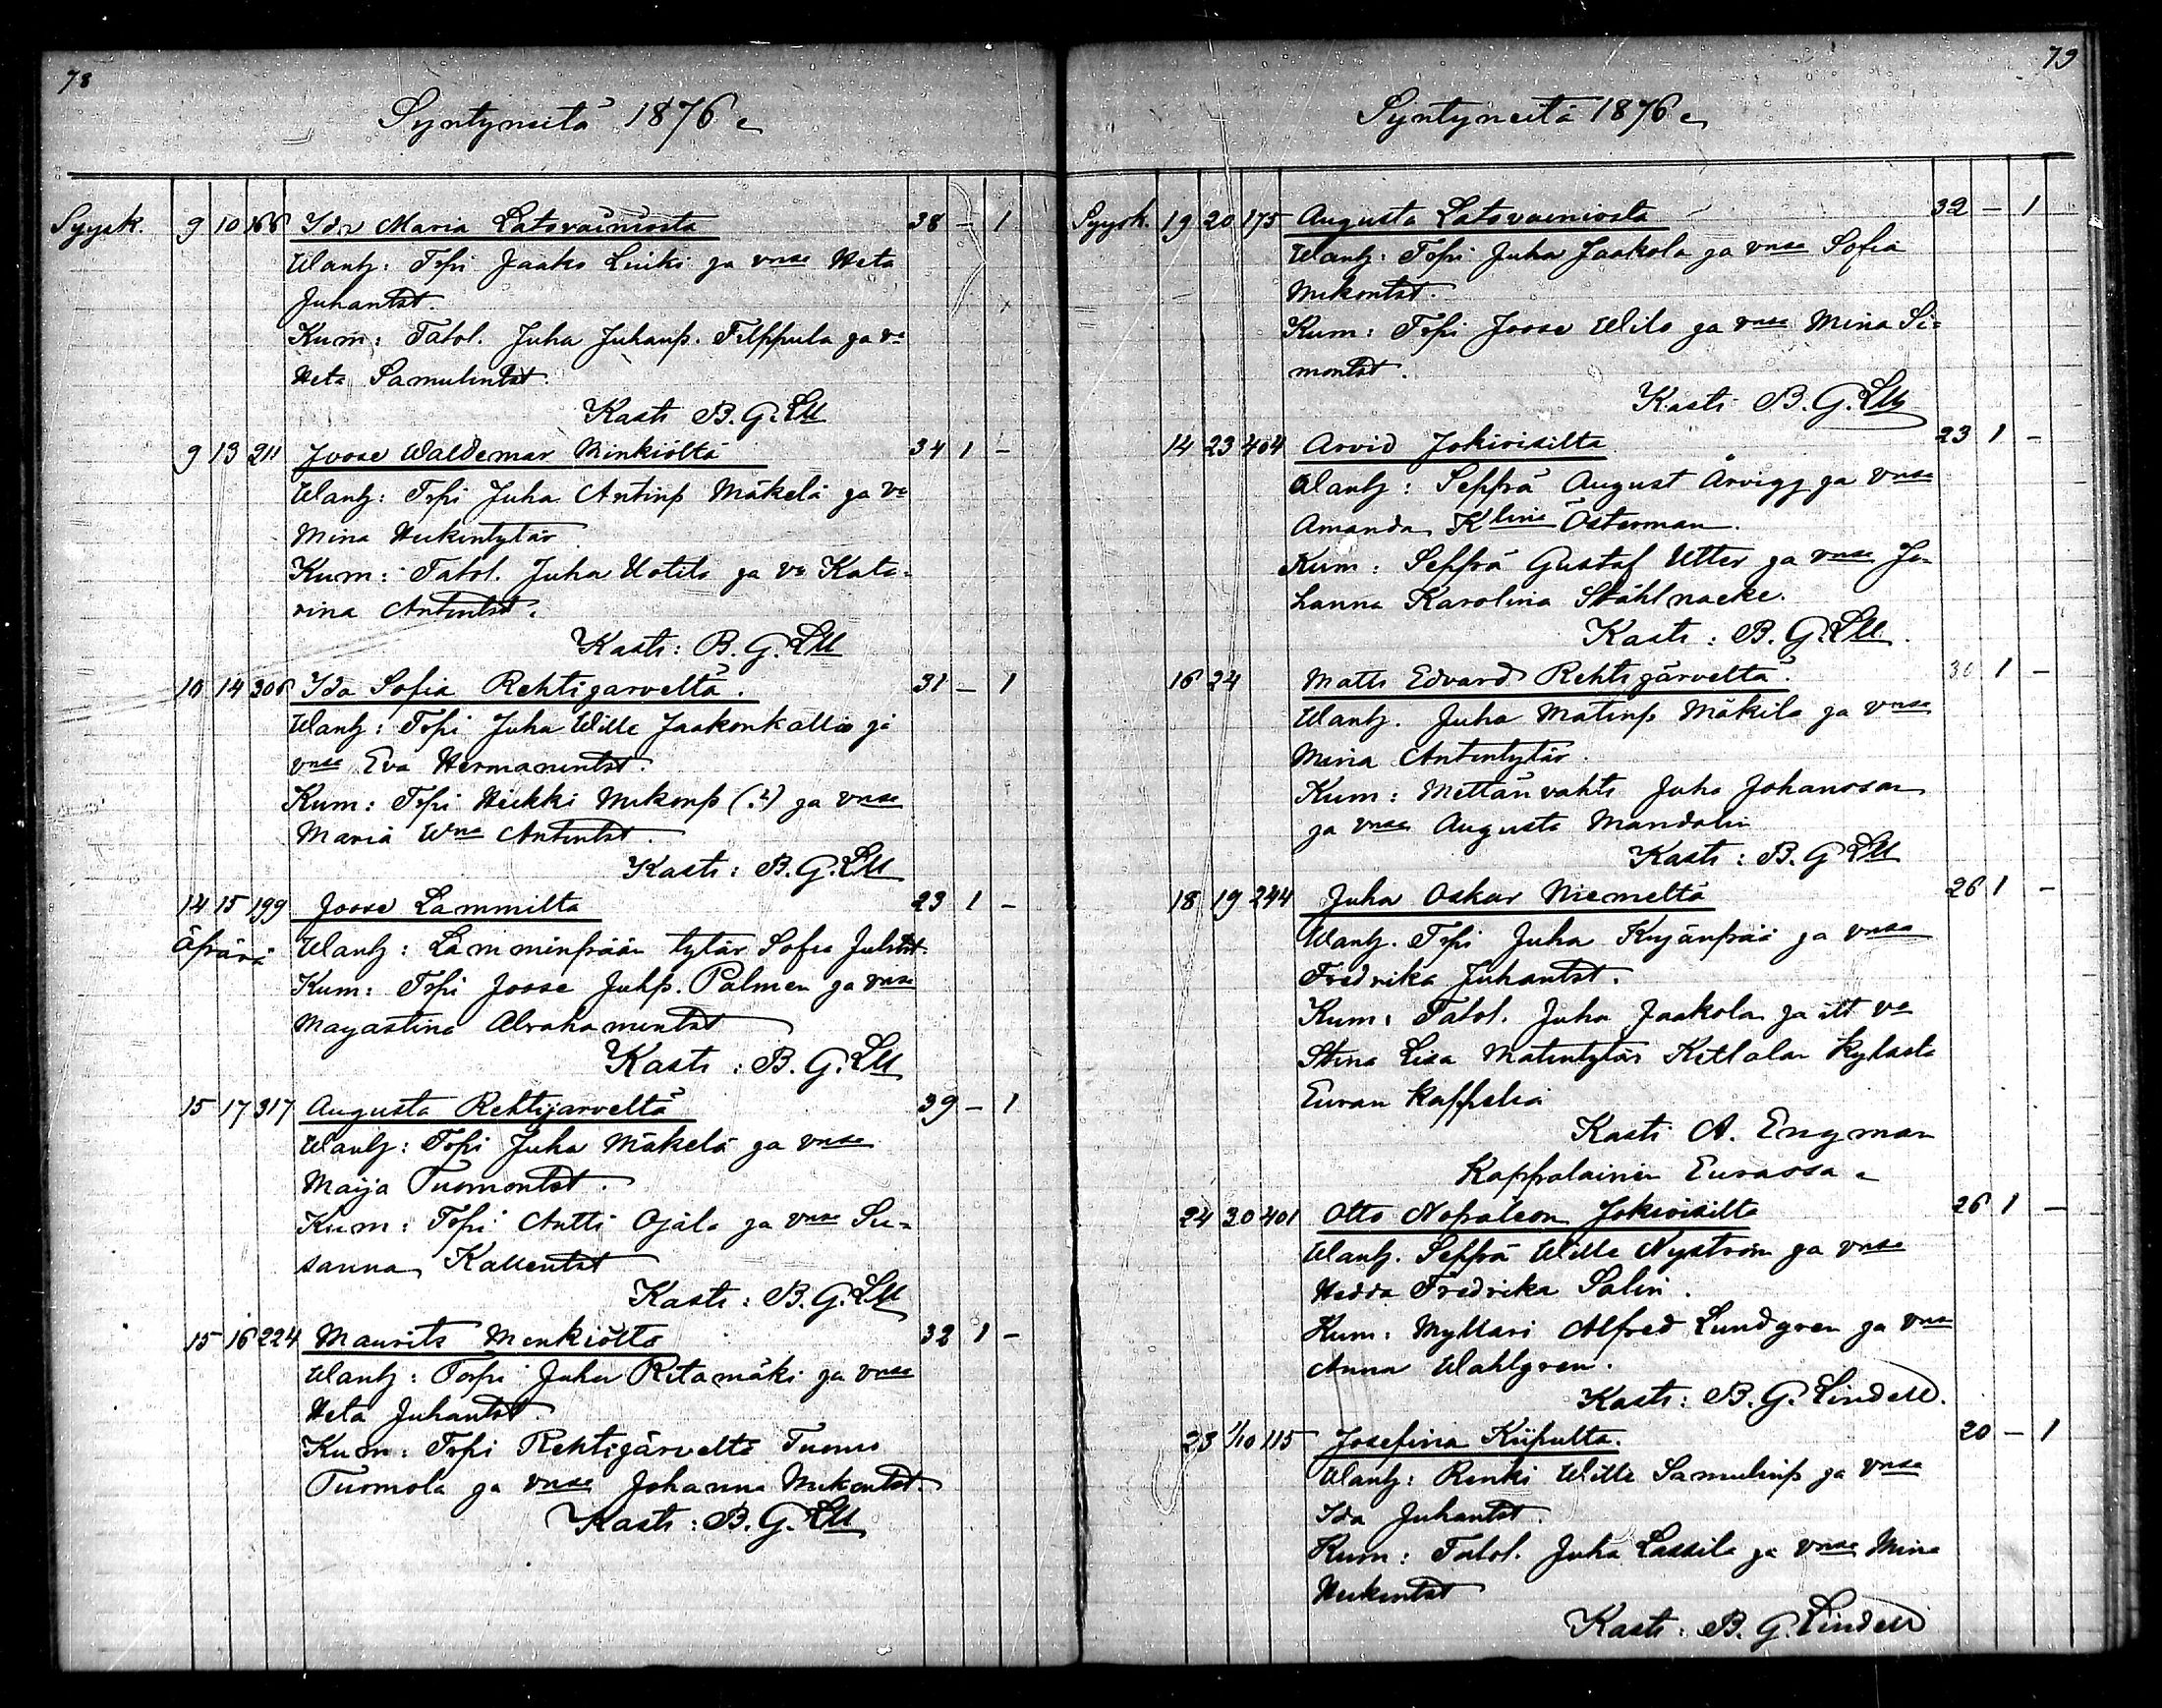 78
Syntyneitä 1876
Syysk. 9 10 166 Ida Maria Latovainiosta 38 - 1
Wanh: Trpi Jaako Linki ja vnsa Heta
Juhantst.
Kum: Talol. Juha Juhanp. Filppula ja va
Heta Samulintst.
Kasti B. G. Lll
9 13 211 Joose Waldemar Minkiöltä 34 1 -
Wanh: Trpi Juha Antinp Mäkelä ja va
Mina Heikintytär
Kum: Talol. Juha Uotila ja va Kata-
rina Antintst.
Kasti: B. G. Lll
10 14 306 Ida Sofia Rehtijärveltä. 31 - 1
Wanh: Trpi Juha Wille Jaakonkallio ja
vnsa Eva Hermanintst.
Kum: Trpi Heikki Mikonp (?) ja vnsa
Maria Wna Antintst.
Kasti: B. G. Lll
14 15 199 Joose Lammilta 23 1 -
äpärä Wanh: Lamminpään tytär Sofia Juhtst.
Kum: Trpi Joose Juhp. Palmen ja vnsa
Majastina Abrahamintst
Kasti: B. G. Lll
15 17 317 Augusta Rehtijärveltä 39 - 1
Wanh: Trpi Juha Mäkelä ja vnsa
Maija Tuomontst.
Kum: Trpi Antti Ojala ja vnsa Su-
sanna Kallentst
Kasti: B. G. Lll
15 16 224 Maurits Menkiöltä 32 1 -
Wanh: Torpi Juha Ritamäki ja vnsa
Heta Juhantst.
Kum: Trpi Rehtijärveltä Tuomo
Tuomola ja vnsa Johanna Mikontst.
Kasti: B. G. Lll
79
Syntyneitä 1876
Syysk. 19 20 175 Augusta Latovainiosta 32 - 1
Wanh: Trpi Juha Jaakola ja vnsa Sofia
Mikontst.
Kum: Trpi Joose Wilo ja vnsa Mina Si-
montst.
Kasti B. G. Lll
14 23 404 Arvid Jokivisilta 23 1 -
Wanh: Seppä August Arvigg ja vnsa
Amanda Klina Österman.
Kum: Seppä Gustaf Utter ja vnsa Jo-
hanna Karolina Ståhlnacke.
Kasti: B. G. Lll.
16 24 Matti Edvard Rehtijärveltä. 36 1 -
Wanh. Juha Matinp Mäkilä ja vnsa
Mina Antintytär.
Kum: Mettänvahti Juha Johansson
ja vnsa Augusta Mandolin
Kasti: B. G Lll
18 19 244 Juha Oskar Niemeltä 26 1 -
Wanh. Trpi Juha Kujänpää ja vnsa
Fredrika Juhantst.
Kum: Talol. Juha Jaakola ja itt va
Stina Lisa Matintytär Kittalan kylästä
Euran Kappelia
Kasti A. Engman
Kappalainen Eurassa
24 30 401 Otto Napoleon Jokivisilta 26 1 -
Wanh. Seppä Wille Nyström ja vnsa
Hedda Fredrika Salin.
Kum: Mylläri Alfred Lundgren ja vnsa
Anna Wahlgren.
Kasti: B. G. Lindell.
23 1/10 115 Josefina Kiipulta. 20 - 1
Wanh: Renki Wille Samulinp ja vnsa
Ida Juhantst.
Kum: Talol. Juha Lassila ja vnsa Mina
Heikintst
Kasti: B. G. Lindell